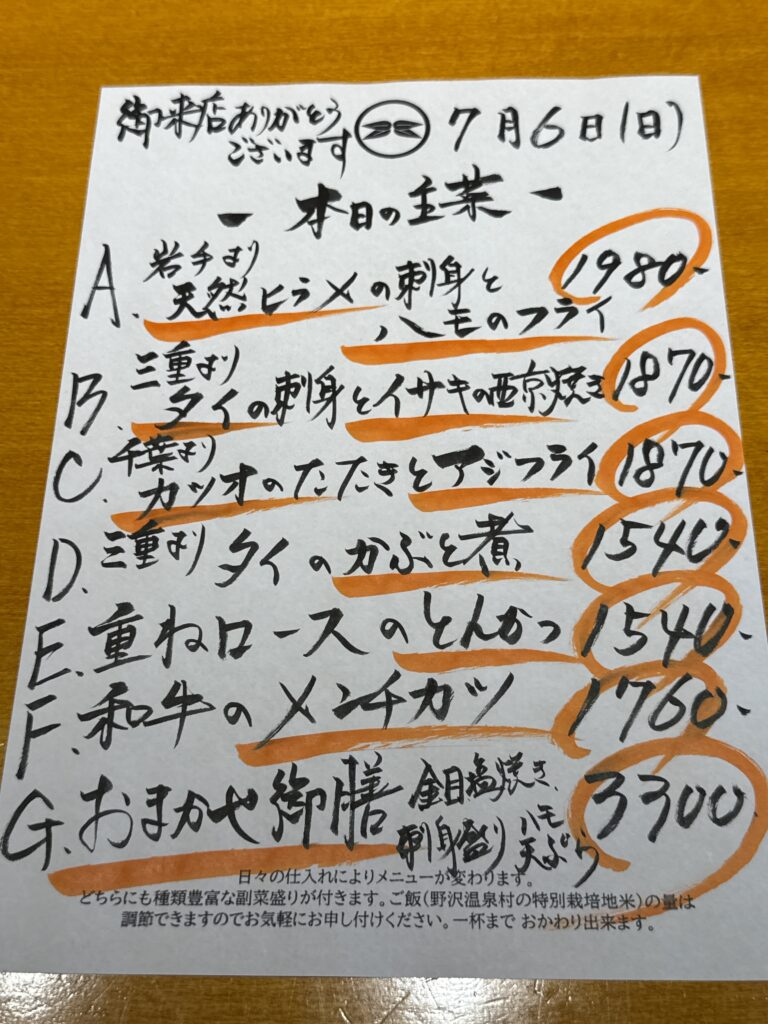 御来店ありがとう
ございます
7月6日(日)
- 本日の主菜 -
A. 岩手より
天然ヒラメの刺身と
ハモのフライ
1980-
B. 三重より
タイの刺身とイサキの西京焼き 1870-
C. 千葉より
カツオのたたきとアジフライ 1870-
D. 三重より タイのかぶと煮 1540-
E. 重ねロースのとんかつ 1540-
F. 和牛のメンチカツ 1760-
G. おまかせ御膳 金目塩焼き、
刺身盛り ハモ
天ぷら
3300
日々の仕入れによりメニューが変わります。
どちらにも種類豊富な副菜盛りが付きます。ご飯(野沢温泉村の特別栽培地米)の量は
調節できますのでお気軽にお申し付けください。一杯まで おかわり出来ます。